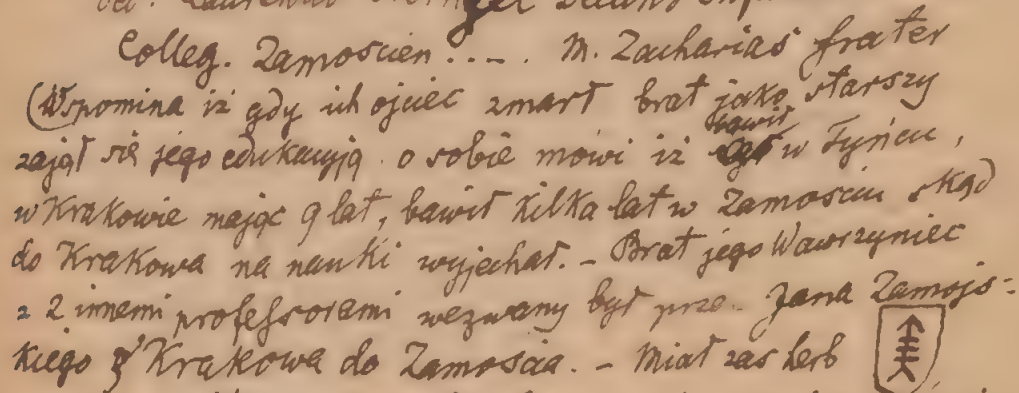 Colleg. Zamoscien .... M. Zacharias frater
(Wspomina iż gdy ich ojciec zmarł brat jako starszy
zajął się jego edukacyją. o sobie mówi iż bawił w Tyńcu,
w Krakowie mając 9 lat, bawił kilka lat w Zamościu skąd
do Krakowa na nauki wyjechał. – Brat jego Wawrzyniec
z 2 innemi professorami wezwany był prze. Jana Zamojs-
kiego z Krakowa do Zamościa. – Miał zaś herb